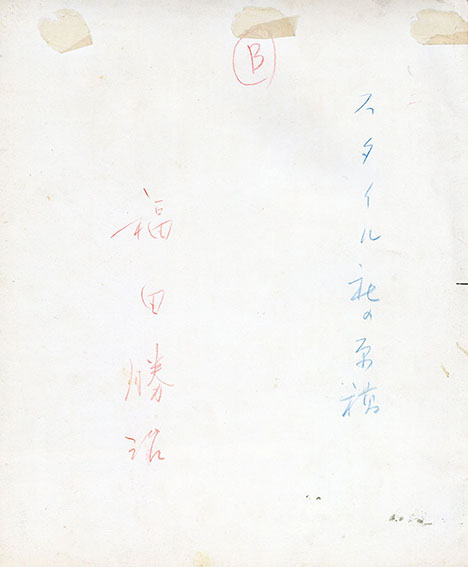 B
スタイル社の原稿
福田勝治